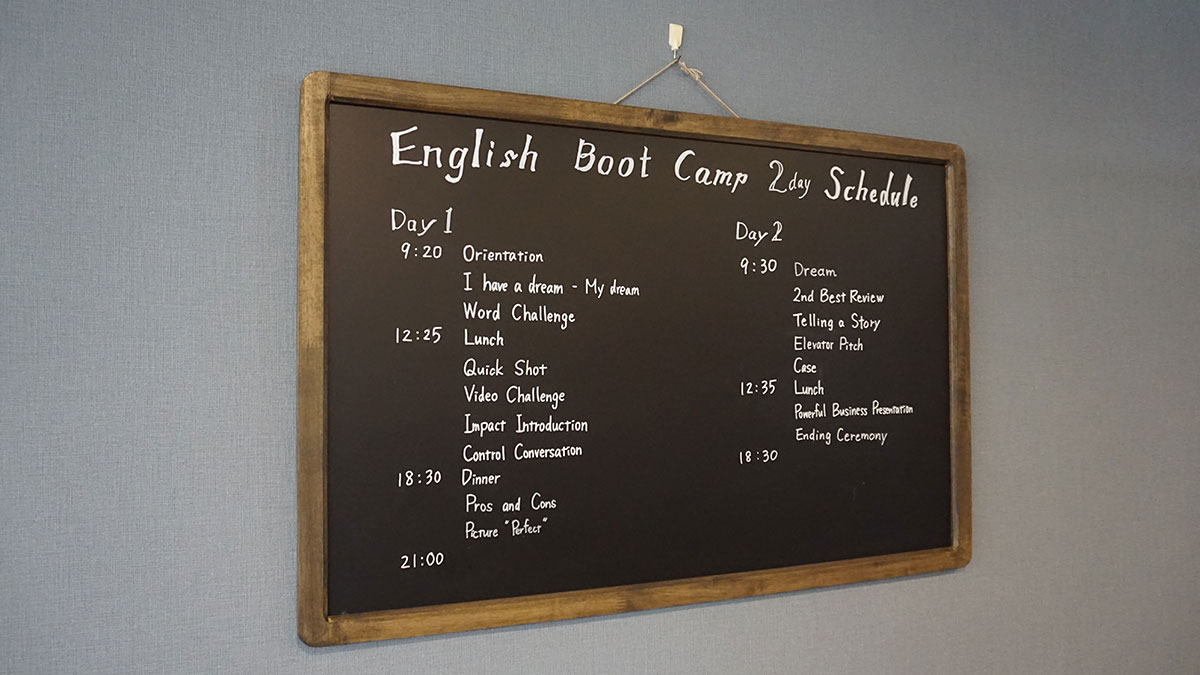 English Boot Camp 2day Schedule
Day 1
9:20 Orientation
I have a dream - My dream
Word Challenge
12:25 Lunch
Quick Shot
Video Challenge
Impact Introduction
Control Conversation
18:30 Dinner
Pros and Cons
Picture "Perfect"
21:00
Day 2
9:30 Dream
2nd Best Review
Telling a Story
Elevator Pitch
Case
12:35 Lunch
Powerful Business Presentation
Ending Ceremony
18:30